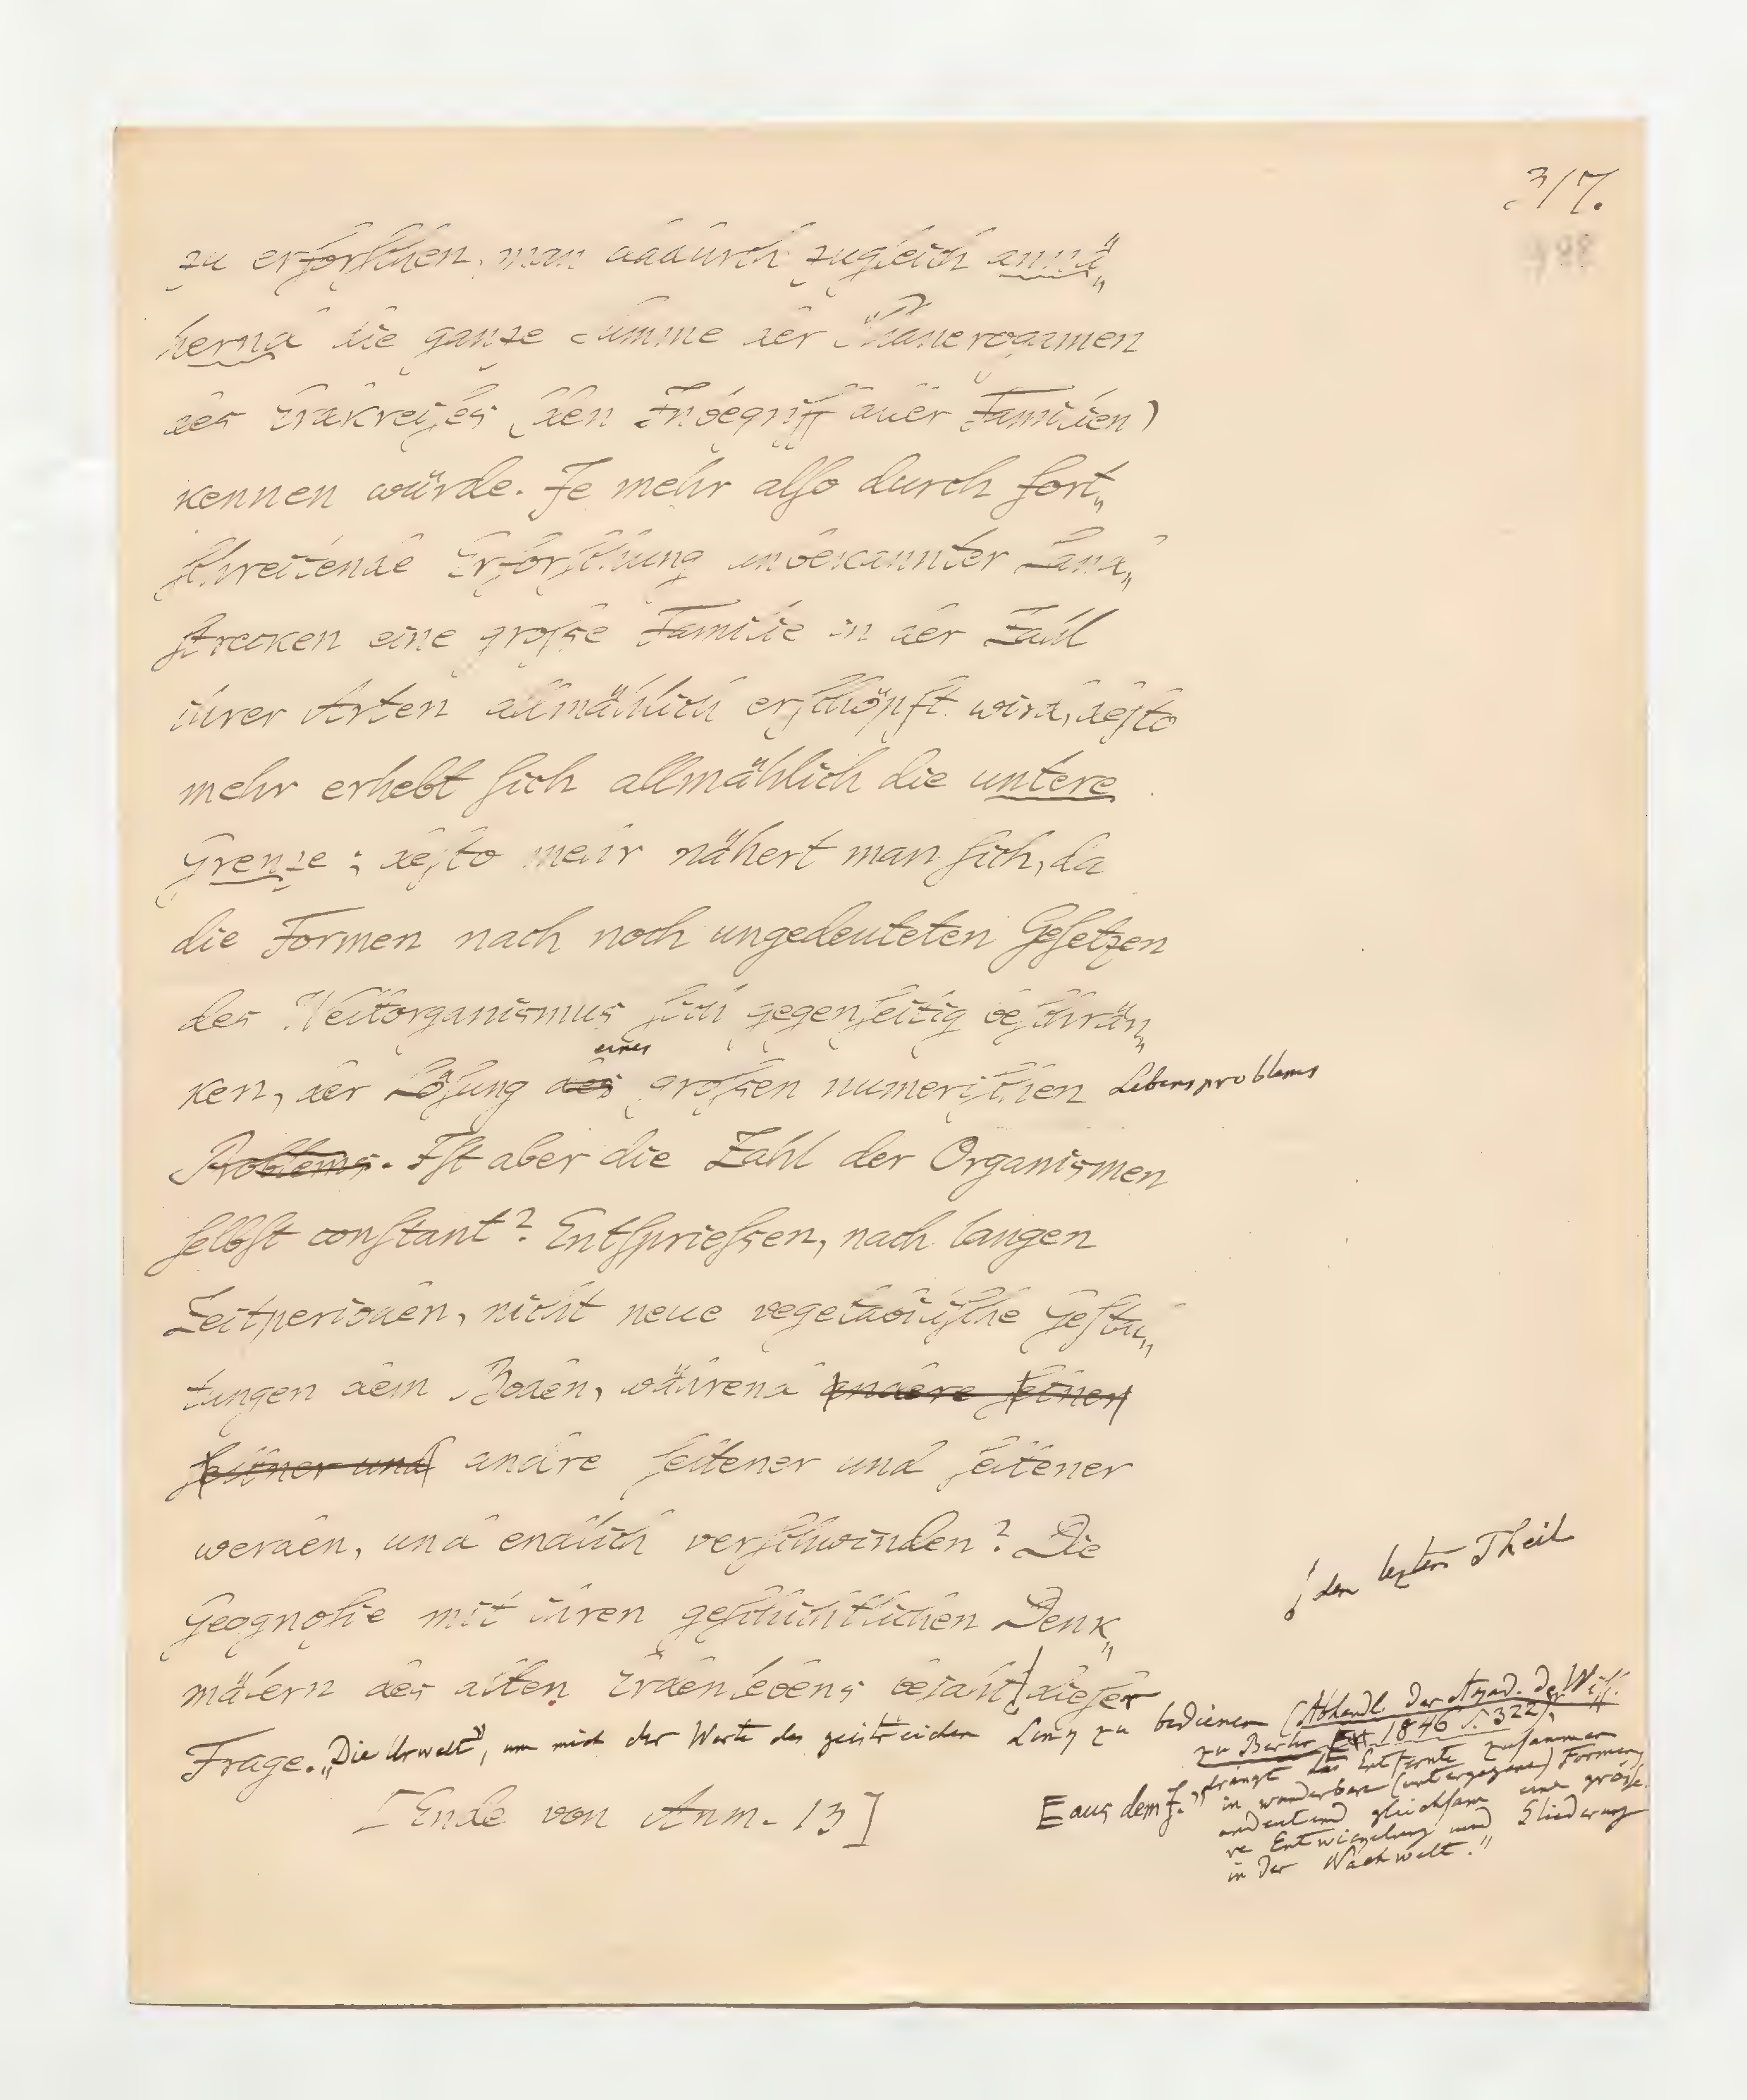 317.
zu erforschen, man dadurch zugleich annä„
hernd die ganze Summe der Phanerogamen
des Erdkreises (den Inbegriff aller Familien)
kennen würde. Je mehr also durch fort„
schreitende Erforschung unbekannter Land„
strecken eine große Familie in der Zahl
ihrer Arten allmählich erschöpft wird, desto
mehr erhebt sich allmählich die untere
Grenze; desto mehr nähert man sich, da
die Formen nach noch ungedeuteten Gesetzen
des Weltorganismus sich gegenseitig beschrän„
eines
ken, der Lösung des großen numerischen Lebensproblems
Problems. Ist aber die Zahl der Organismen
selbst constant? Entspriessen, nach langen
Zeitperioden, nicht neue vegetabilische Gestal„
tungen dem Boden, während andere seltner
seltner und andre seltener und seltener
werden, und endlich verschwinden? Die
Geognosie mit ihren geschichtlichen Denk„
mälern des alten Erdenlebens bejaht dieser
den lezten Theil
Frage. „Die Urwelt", um mich der Worte des geistreichen Link zu bedienen (Abhandl. der Akad. der Wiss.
zu Berlin 1846 S. 322),
„drängt das Entfernte zusammen
in wunderbare (untergegane) Formen,
andeutend gleichsam eine größe
re Entwickelung und Gliederung
in der Nachwelt."
[Ende von Anm. 13]
aus dem J.